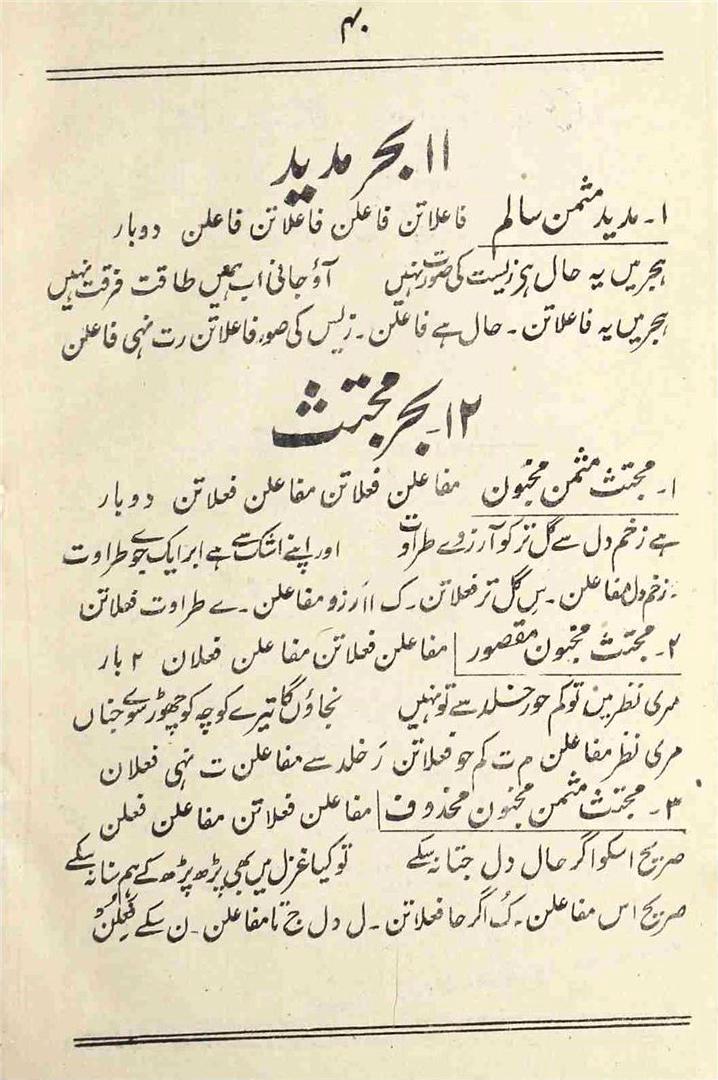 ۴۰
۱۱ بحر مدید
۱۔ مدید مثمن سالم فاعلاتن فاعلن فاعلاتن فاعلن دوبار
ہجر میں یہ حال ہی زیست کی صورت نہیں آؤ جانی اب ہمیں طاقت فرقت نہیں
ہجر میں یہ فاعلاتن۔ حال ہے فاعلن۔ زیس کی صو، فاعلاتن رت نہی فاعلن
۱۲۔ بحر مجتث
۱۔ مجتث مثمن مخبون مفاعلن فعلاتن مفاعلن فعلاتن دوبار
ہے زخم دل سے گل تر کو آرزوے طراوت اور اپنے اشک سے ہے ابر ایک جوے طراوت
۔زخم دل مفاعلن۔ سِ گل تر فعلاتن۔ ک اارزو مفاعلن۔ ے طراوت فعلاتن
۲۔ مجتث مخبون مقصور مفاعلن فعلاتن مفاعلن فعلان ۲ بار
مری نظر میں تو کم حور خلد سے تو نہیں نجاؤں گا تیرے کوچہ کو چھوڑ سوے جناں
مری نظر مفاعلن م ت کم حو فعلاتن رَ خلد سے مفاعلن ت نہی فعلان
۳۔ مجتث مثمن مخبون محذوف مفاعلن فعلاتن مفاعلن فعلن
صریح اسکو اگر حال دل جتا نہ سکے تو کیا غزل میں بھی پڑھ پڑھ کے ہم سنا نہ سکے
صریح اس مفاعلن۔ کُ اگر حا فعلاتن۔ ل دل ج تا مفاعلن۔ ن سکے فَعِلُن